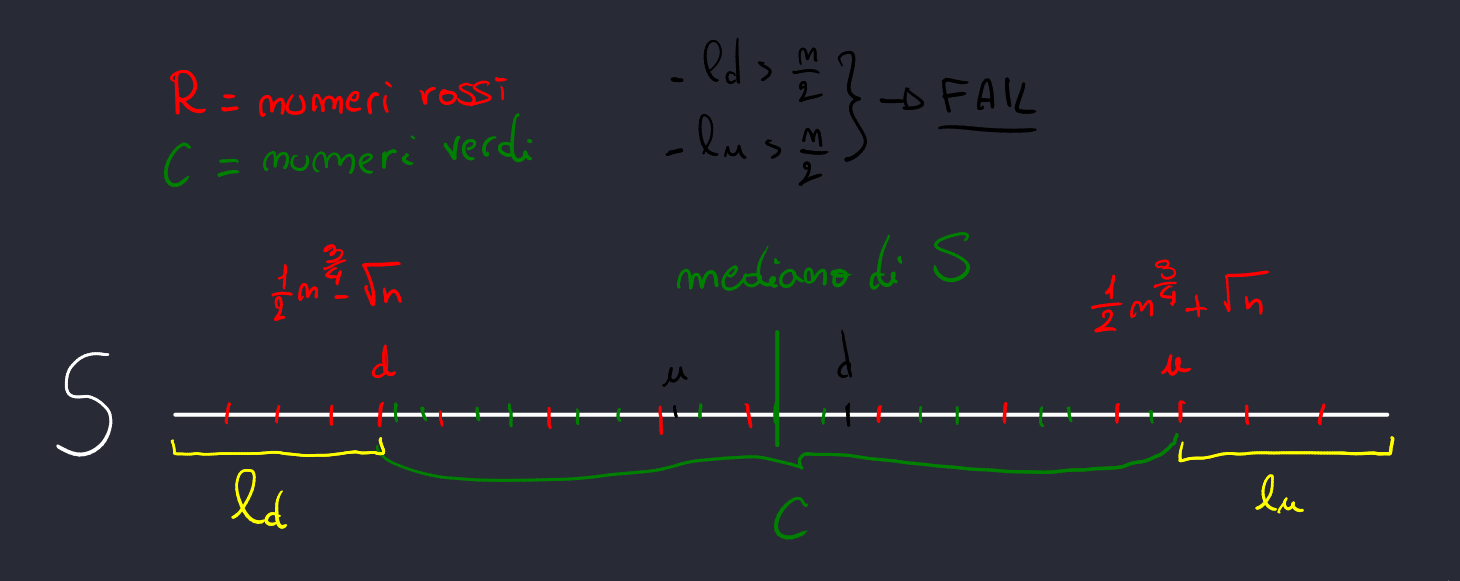 R = numeri rossi
C = numeri verdi
- ld > n/2
- lu > n/2
} → FAIL
1/2 n^3/4 - √n
mediano di S
1/2 n^3/4 + √n
d
u
d
u
S
ld
C
lu